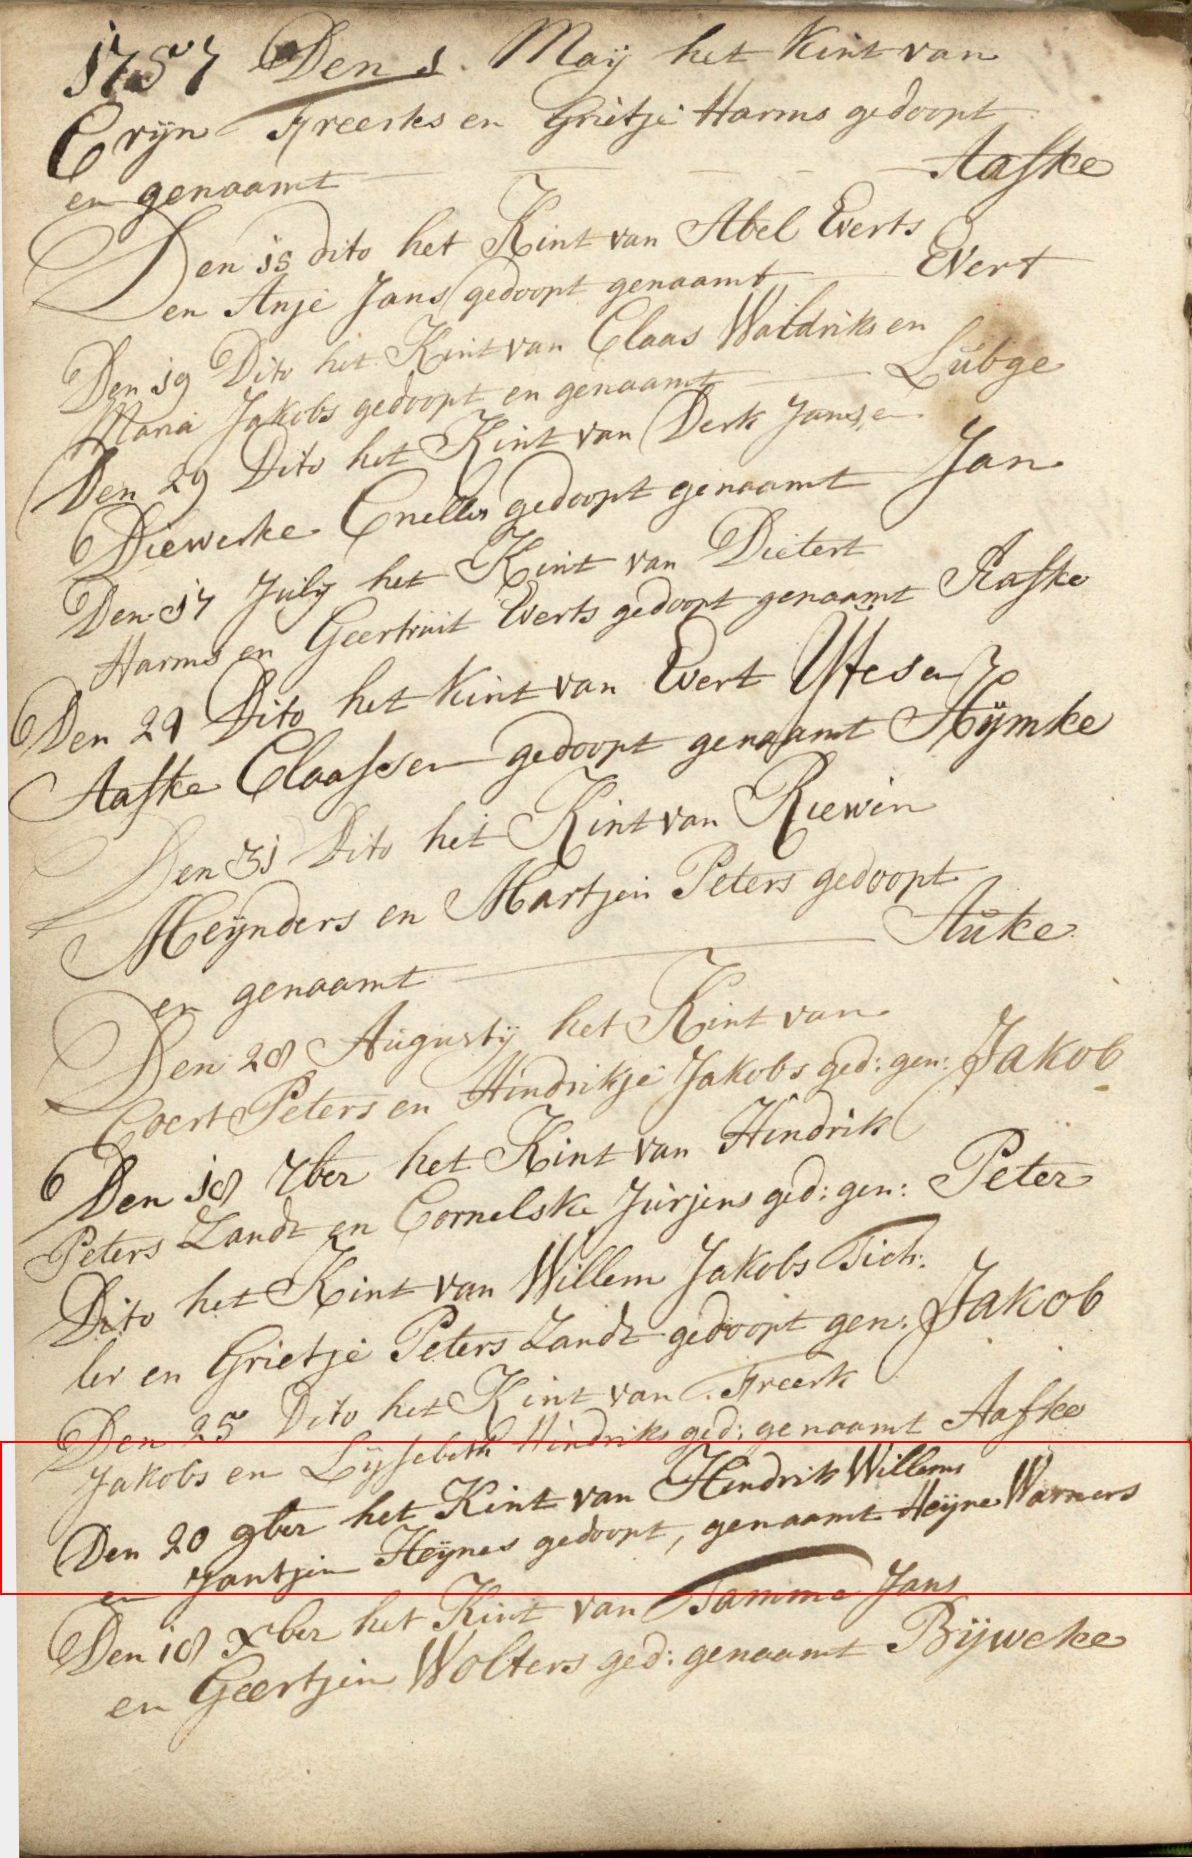 1757 Den 1. Maij het Kint van
Crijn Freerks en Grietje Harms gedoopt
en genaamt Aafke
Den 15 dito het Kint van Abel Everts
en Anje Jans gedoopt genaamt Evert
Den 19 Dito het Kint van Claas Waldriks en
Maria Jakobs gedoopt en genaamt Lubge
Den 29 Dito het Kint van Derk Jans en
Diewerke Cnellis gedoopt genaamt Jan
Den 17 July het Kint van Dietert
Harms en Geertruit Everts gedoopt genaamt Aafke
Den 29 Dito het Kint van Evert
Aafke Claassen gedoopt genaamt Hijmke
Den 31 Dito het Kint van Riewin
Meijnders en Martjen Peters gedoopt
en genaamt Auke
Den 28 Augustij het Kint van
Coert Peters en Hindrikje Jakobs ged: gen: Jakob
Den 18 7ber het Kint van Hindrik
Peters Zandt en Cornelske Jurjens ged: gen: Peter
Dito het Kint van Willem Jakobs Tich:
ler en Grietje Peters Zandt gedoopt gen: Jakob
Den 25 Dito het Kint van Freerk
Jakobs en Lijsebeth Hindriks ged: genaamt Aafke
Den 20 9ber het Kint van Hindrik Willems
en Jantjen Heijnes gedoopt, genaamt Heijne Warners
Den 18 Xber het Kint van Tamme Jans
en Geertjen Wolters ged: genaamt Bijweke